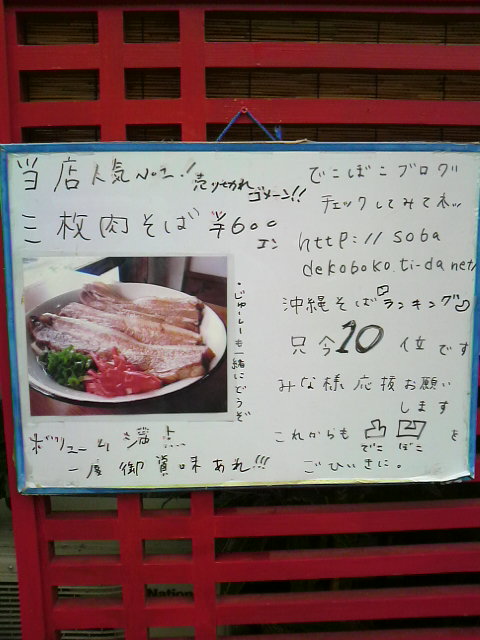 当店人気No1!
売り切れ
ゴメーン!!
三枚肉そば ¥600
エン
・じゅーしーも一緒にどうぞ
ボリューム満点
一度御賞味あれ!!!
でこぼこブログ
チェックしてみてネッ
http://soba
dekoboko.ti-da.net/
沖縄そばランキング
只今10位です
みな様応援お願い
します
これからも凸凹を
でこ ぼこ
ごひいきに。
Nation